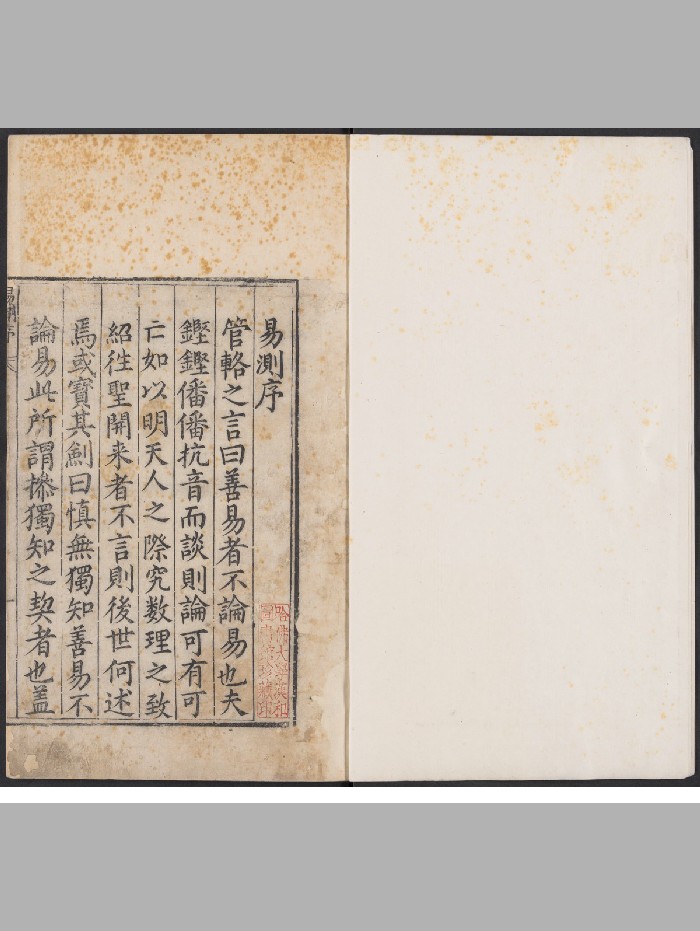 易測序
管輅之言曰善易者不論易也夫
鏗鏗僠僠抗音而談則論可有可
亡如以明天人之際究数理之致
紹徃聖開来者不言則後世何述
焉或寳其劍曰慎無獨知善易不
論易此所謂摻獨知之契者也盖
易測序
哈佛大學漢和
圖書館珍藏印